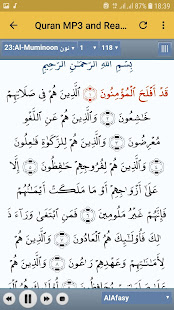 18:39
Quran MP3 and Rea...
23:Al-Muminoon نون 1 118
بِسْمِ اللَّهِ الرَّحْمَٰنِ الرَّحِيمِ
قَدْ أَفْلَحَ الْمُؤْمِنُونَ ۝ الَّذِينَ هُمْ فِي صَلَاتِهِمْ
خَاشِعُونَ ۝ وَالَّذِينَ هُمْ عَنِ اللَّغْوِ
مُعْرِضُونَ ۝ وَالَّذِينَ هُمْ لِلزَّكَوٰةِ فَاعِلُونَ ۝
وَالَّذِينَ هُمْ لِفُرُوجِهِمْ حَافِظُونَ ۝ إِلَّا
عَلَىٰ أَزْوَاجِهِمْ أَوْ مَا مَلَكَتْ أَيْمَانُهُمْ
فَإِنَّهُمْ غَيْرُ مَلُومِينَ ۝ فَمَنِ ابْتَغَىٰ وَرَاءَ
ذَٰلِكَ فَأُولَٰئِكَ هُمُ الْعَادُونَ ۝ وَالَّذِينَ هُمْ
لِأَمَانَاتِهِمْ وَعَهْدِهِمْ رَاعُونَ ۝ وَالَّذِينَ
AlAfasy